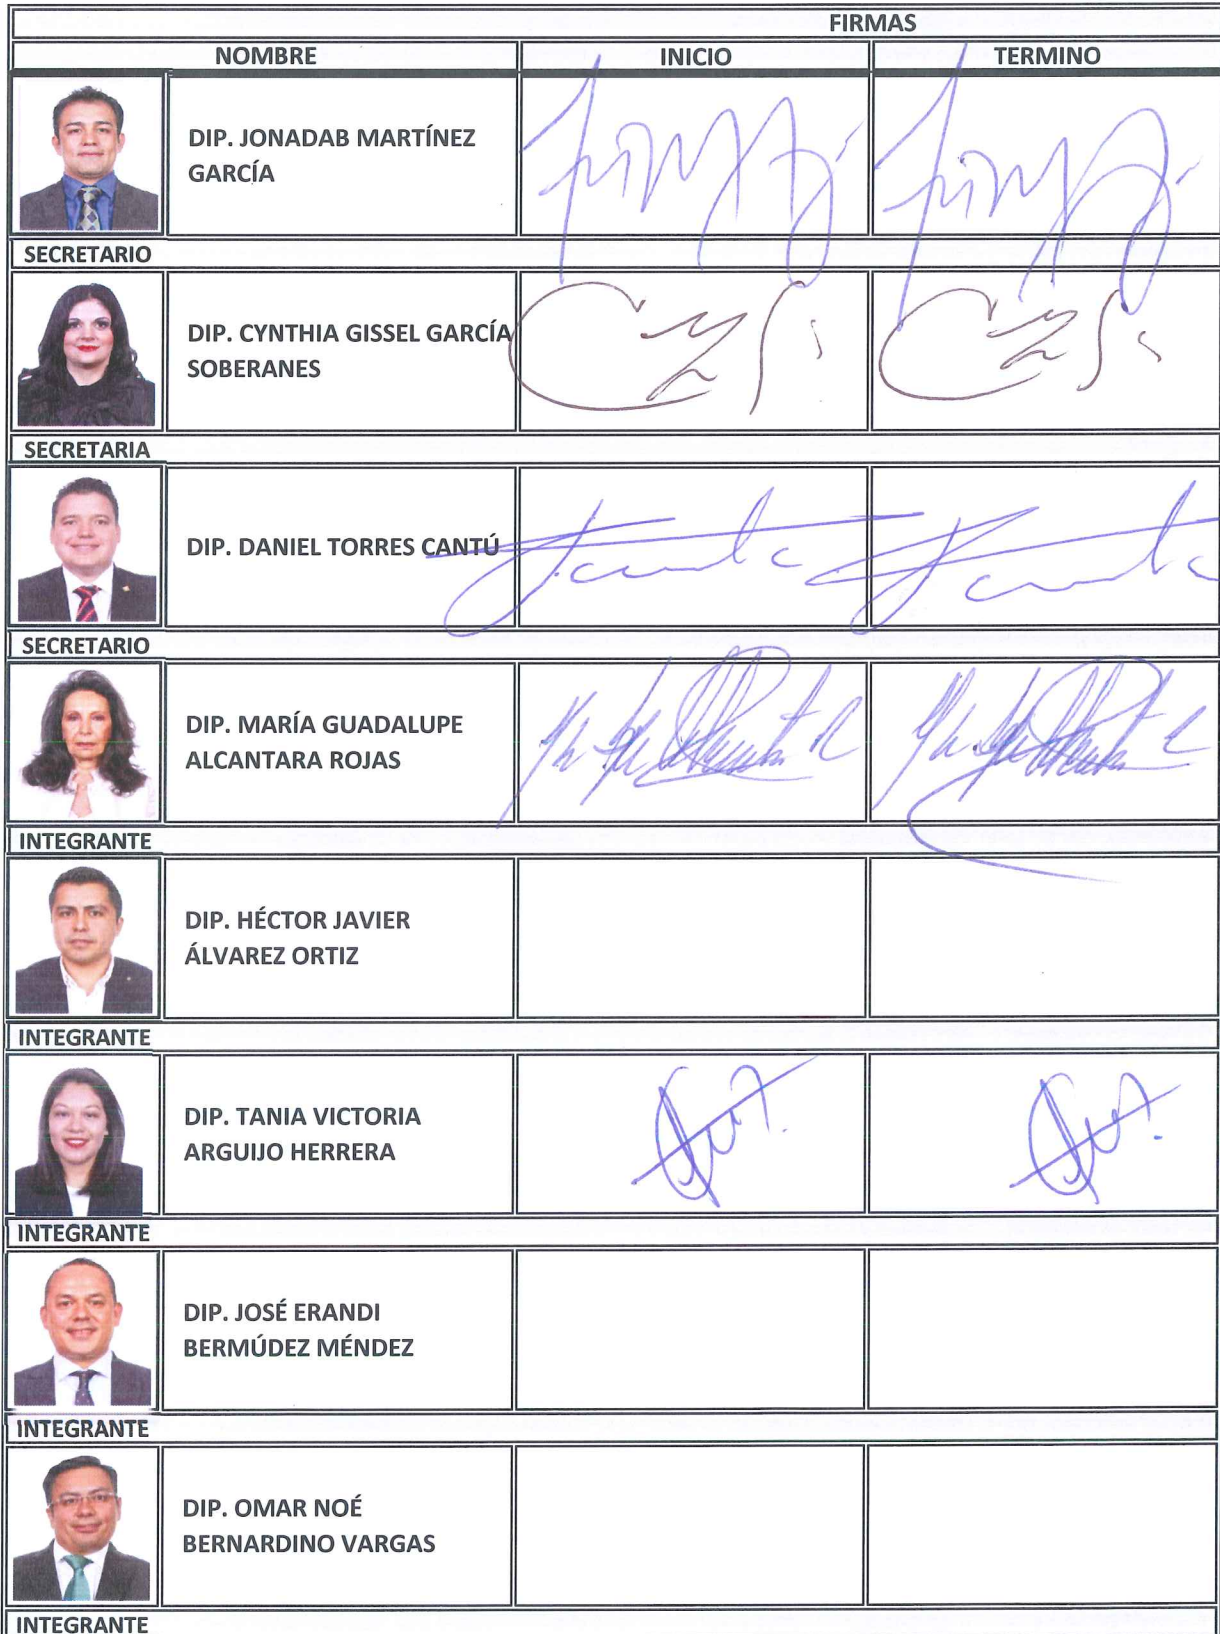 FIRMAS
NOMBRE INICIO TERMINO
DIP. JONADAB MARTÍNEZ
GARCÍA
SECRETARIO
DIP. CYNTHIA GISSEL GARCÍA
SOBERANES
SECRETARIA
DIP. DANIEL TORRES CANTÚ
SECRETARIO
DIP. MARÍA GUADALUPE
ALCANTARA ROJAS
INTEGRANTE
DIP. HÉCTOR JAVIER
ÁLVAREZ ORTIZ
INTEGRANTE
DIP. TANIA VICTORIA
ARGUIJO HERRERA
INTEGRANTE
DIP. JOSÉ ERANDI
BERMÚDEZ MÉNDEZ
INTEGRANTE
DIP. OMAR NOÉ
BERNARDINO VARGAS
INTEGRANTE